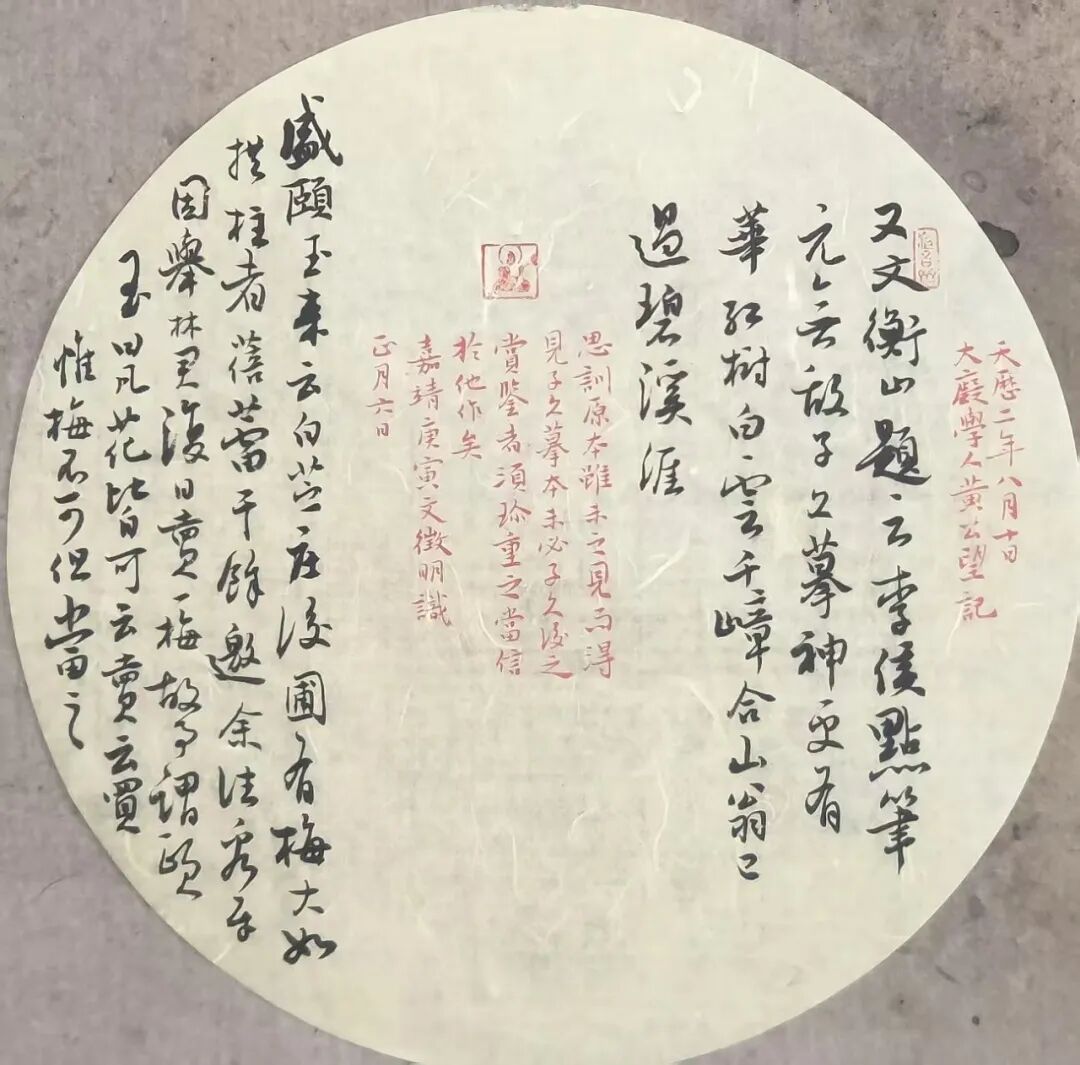 天歷二年八月十日
大癡學人黃公望記
又文衡山題云李侯點筆
元氣敵子久摹神更有
華紅樹白雲千嶂合山翁已
過碧溪涯
思訓原本雖未之見而得
見子久摹本未必子久後之
賞鑒者須珍重之當信
於他作矣
嘉靖庚寅文徵明識
正月六日
盛頤玉來云白芷庄後圃有梅大如
拱柱者蓓蕾千餘邀余往看
因舉林君復日賣一梅故事謂頤
玉曰凡花皆可云賣云買
惟梅不可但當之